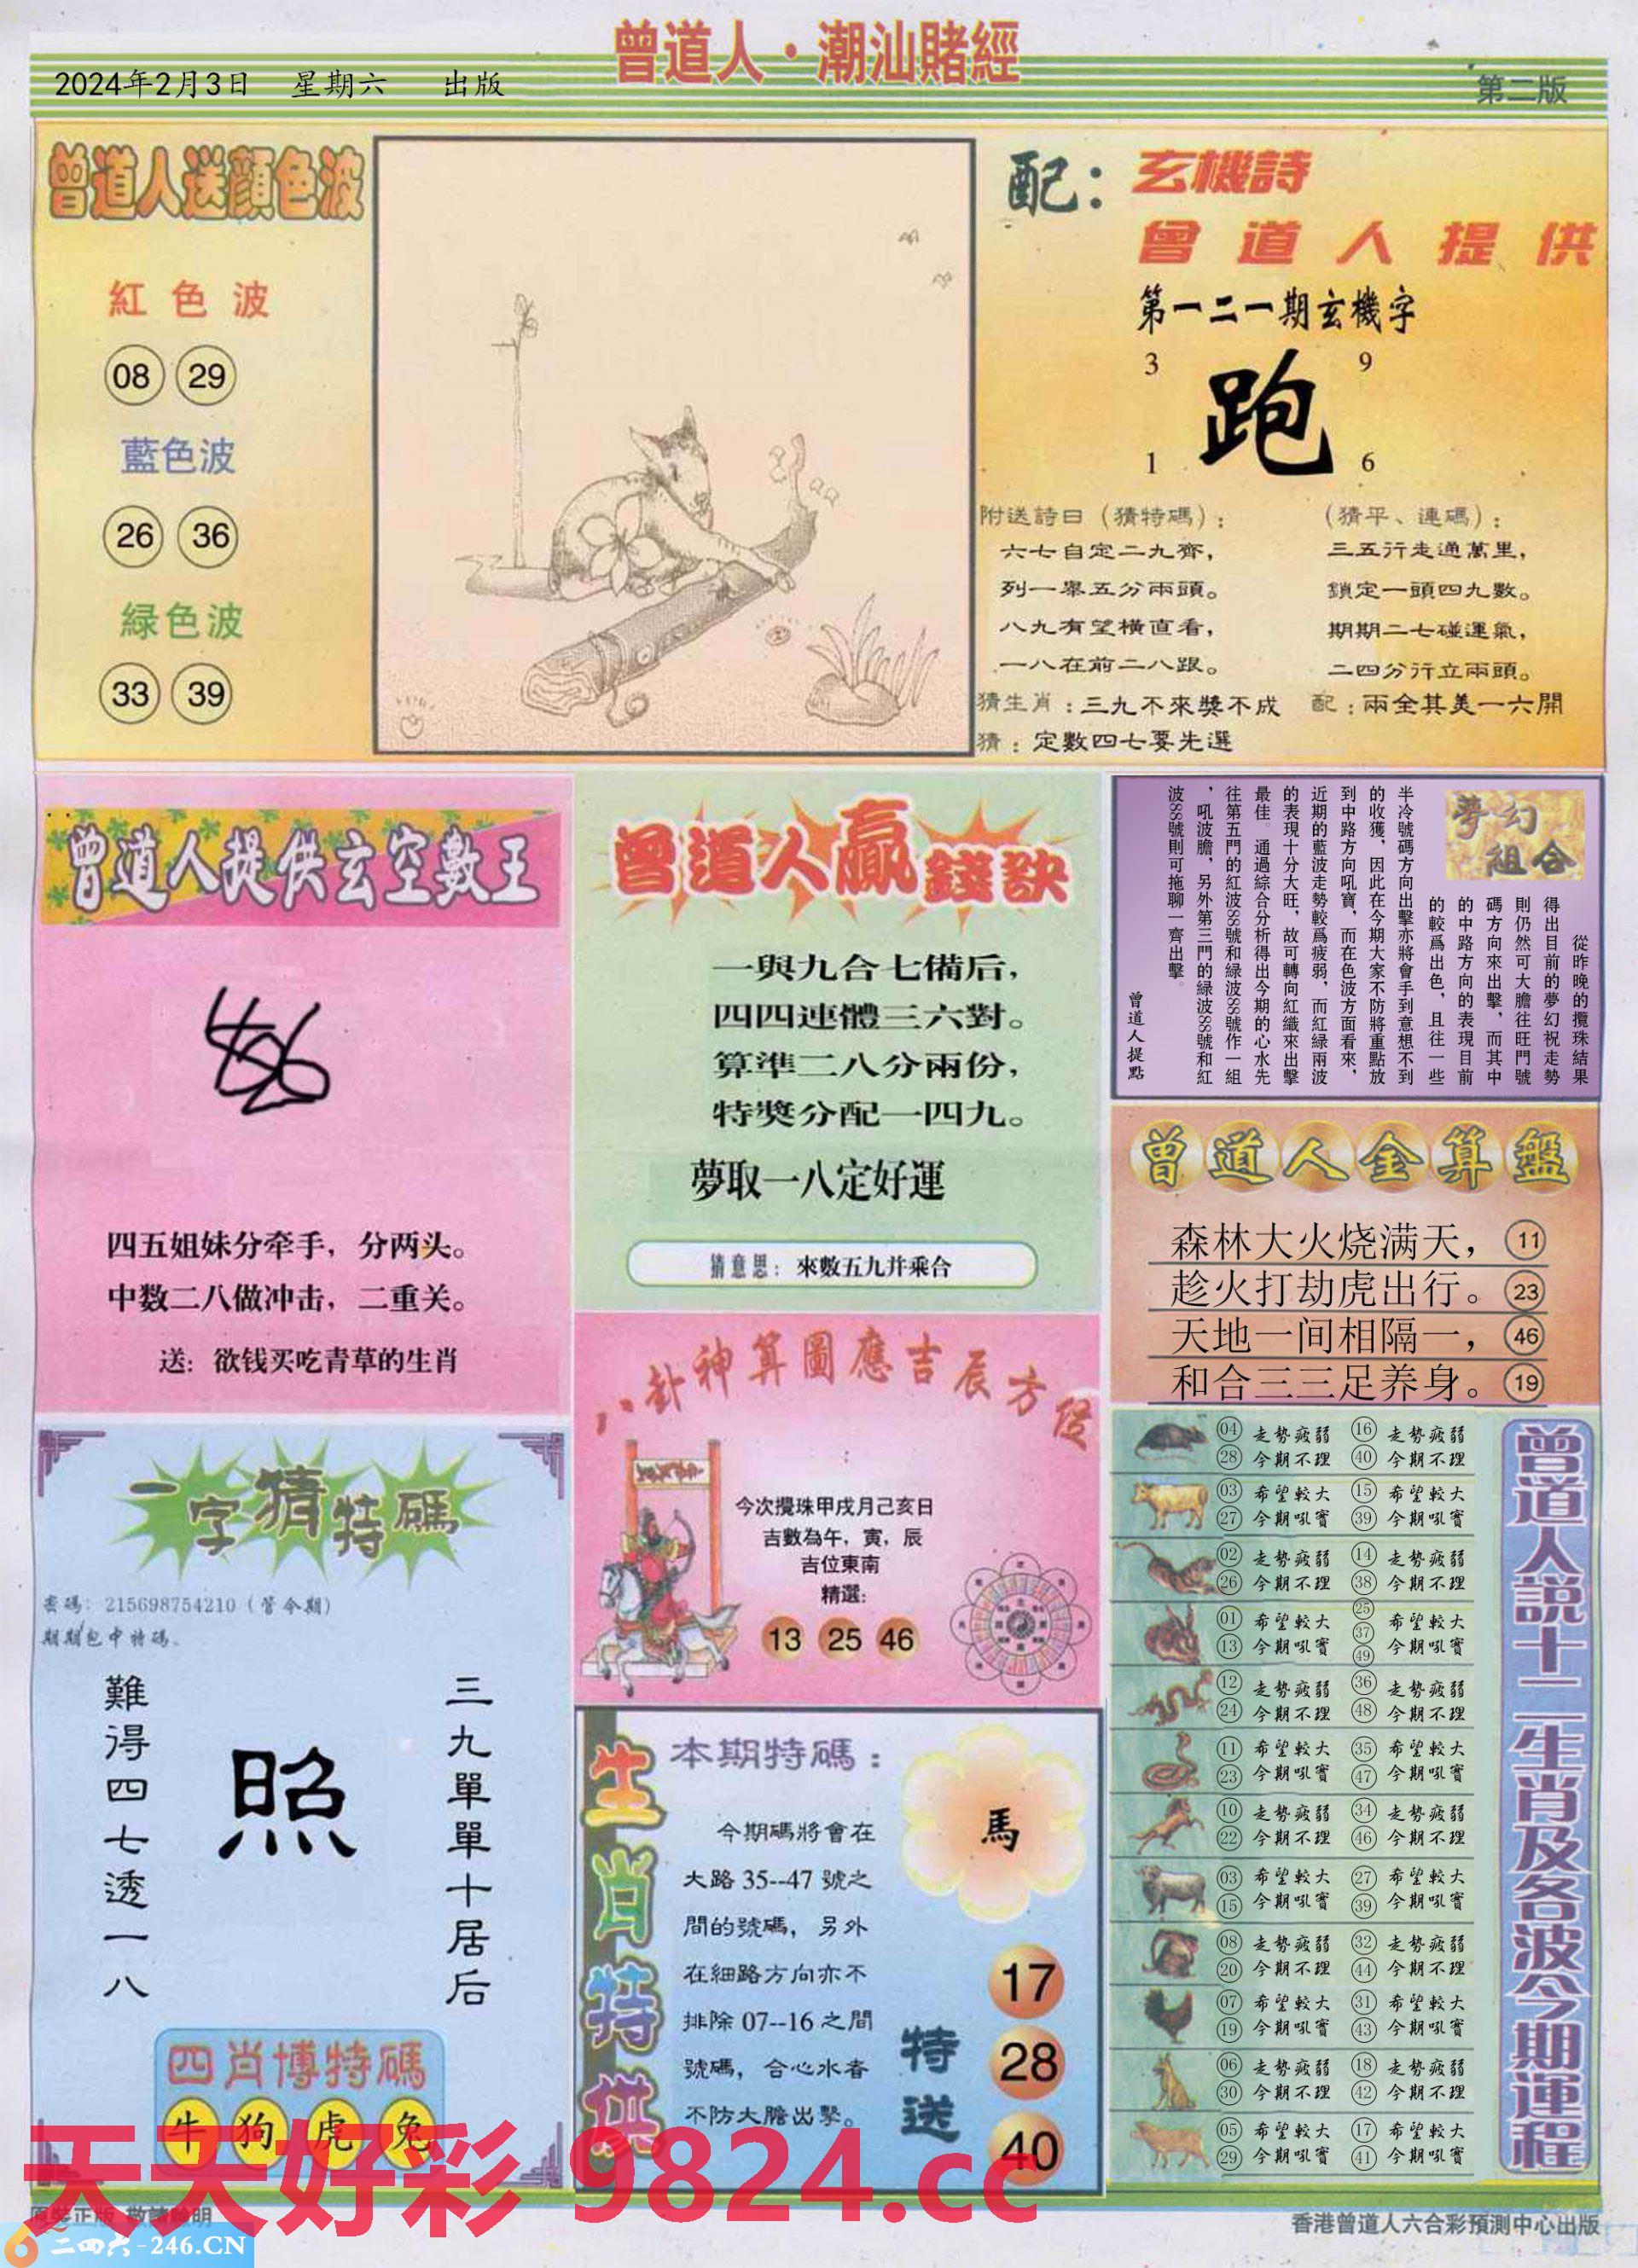 曾道人·潮汕賭經
2024年2月3日 星期六 出版
第二版
曾道人送顔色波
紅色波
08 29
藍色波
26 36
緑色波
33 39
配：玄機詩
曾道人提供
第一二一期玄機字
3 9
跑
1 6
附送詩曰（猜特碼）：
六七自定二九齊，
列一舉五分兩頭。
八九有望橫直看，
一八在前二八跟。
（猜平、連碼）：
三五行走通萬里，
鎖定一頭四九數。
期期二七碰運氣，
二四分行立兩頭。
猜生肖：三九不來獎不成 配：兩全其美一六開
猜：定數四七要先選
曾道人提供玄空數王
四五姐妹分牵手，分两头。
中数二八做冲击，二重关。
送：欲钱买吃青草的生肖
曾道人贏錢訣
一與九合七備后，
四四連體三六對。
算準二八分兩份，
特獎分配一四九。
夢取一八定好運
猜意思：來數五九并乘合
夢幻組合
從昨晚的攪珠結果
得出目前的夢幻祝走勢
則仍然可大膽往旺門號
碼方向來出擊，而其中
的中路方向的表現目前
的較爲出色，且往一些
半冷號碼方向出擊亦將會手到意想不到
的收獲，因此在今期大家不防將重點放
到中路方向吼寶，而在色波方面看來，
近期的藍波走勢較爲疲弱，而紅緑兩波
的表現十分大旺，故可轉向紅織來出擊
最佳。通過綜合分析得出今期的心水先
往第五門的紅波88號和緑波88號作一組
，吼波膽，另外第三門的緑波88號和紅
波88號則可拖聊一齊出擊。
曾道人提點
曾道人金算盤
森林大火烧满天， 11
趁火打劫虎出行。 23
天地一间相隔一， 46
和合三三足养身。 19
八卦神算圖應吉辰方位
今次攪珠甲戌月己亥日
吉數為午，寅，辰
吉位東南
精選：
13 25 46
一字猜特碼
密碼：215698754210（管今期）
期期包中特碼。
三九單單十居后
照
難得四七透一八
四肖博特碼
牛 狗 虎 兔
生肖特供
本期特碼：
今期碼將會在
大路35--47號之
間的號碼，另外
在細路方向亦不
排除07--16之間
號碼，合心水者
不防大膽出擊。
馬
特送
17
28
40
曾道人說十二生肖及各波今期運程
04 走勢疲弱 16 走勢疲弱
28 今期不理 40 今期不理
03 希望較大 15 希望較大
27 今期吼寶 39 今期吼寶
02 走勢疲弱 14 走勢疲弱
26 今期不理 38 今期不理
01 希望較大 25 37 希望較大
13 今期吼寶 49 今期吼寶
12 走勢疲弱 36 走勢疲弱
24 今期不理 48 今期不理
11 希望較大 35 希望較大
23 今期吼寶 47 今期吼寶
10 走勢疲弱 34 走勢疲弱
22 今期不理 46 今期不理
03 希望較大 27 希望較大
15 今期吼寶 39 今期吼寶
08 走勢疲弱 32 走勢疲弱
20 今期不理 44 今期不理
07 希望較大 31 希望較大
19 今期吼寶 43 今期吼寶
06 走勢疲弱 18 走勢疲弱
30 今期不理 42 今期不理
05 希望較大 17 希望較大
29 今期吼寶 41 今期吼寶
天天好彩 9824.cc
原裝正版 敬請驗明
二四六-246.CN
香港曾道人六合彩預測中心出版